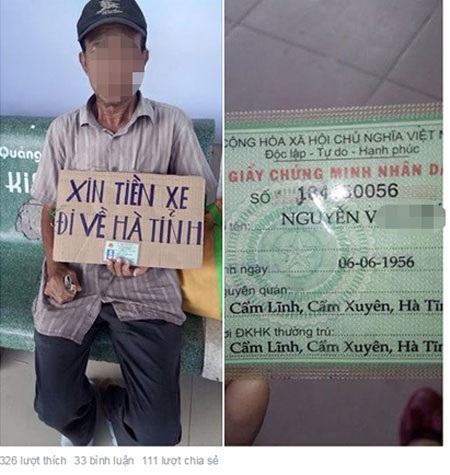 Quảng
XIN TIỀN XE
ĐI VỀ HÀ TĨNH
CỘNG HÒA XÃ HỘI CHỦ NGHĨA VIỆT
Độc lập - Tự do - Hạnh phúc
GIẤY CHỨNG MINH NHÂN
SỐ 0056
tên: NGUYỄN V
inh ngày 06-06-1956
guyên quán:
Cẩm Lĩnh, Cẩm Xuyên, Hà Tĩ
ơi ĐKHK thường trú:
Cẩm Lĩnh, Cẩm Xuyên, Hà Tĩn
326 lượt thích 33 bình luận 111 lượt chia sẻ